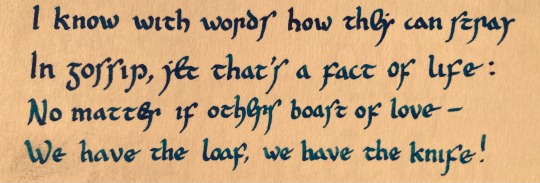 I know with words how they can stray
In gossip, yet that's a fact of life:
No matter if others boast of love –
We have the loaf, we have the knife!